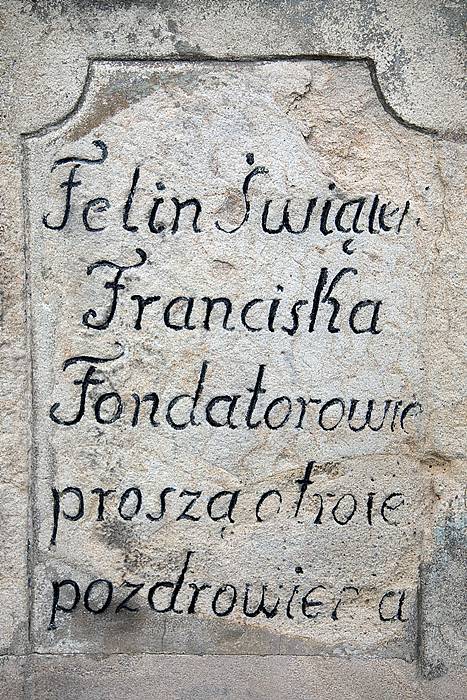 Felin Świątek
Franciska
Fondatorowie
proszą o troie
pozdrowienia